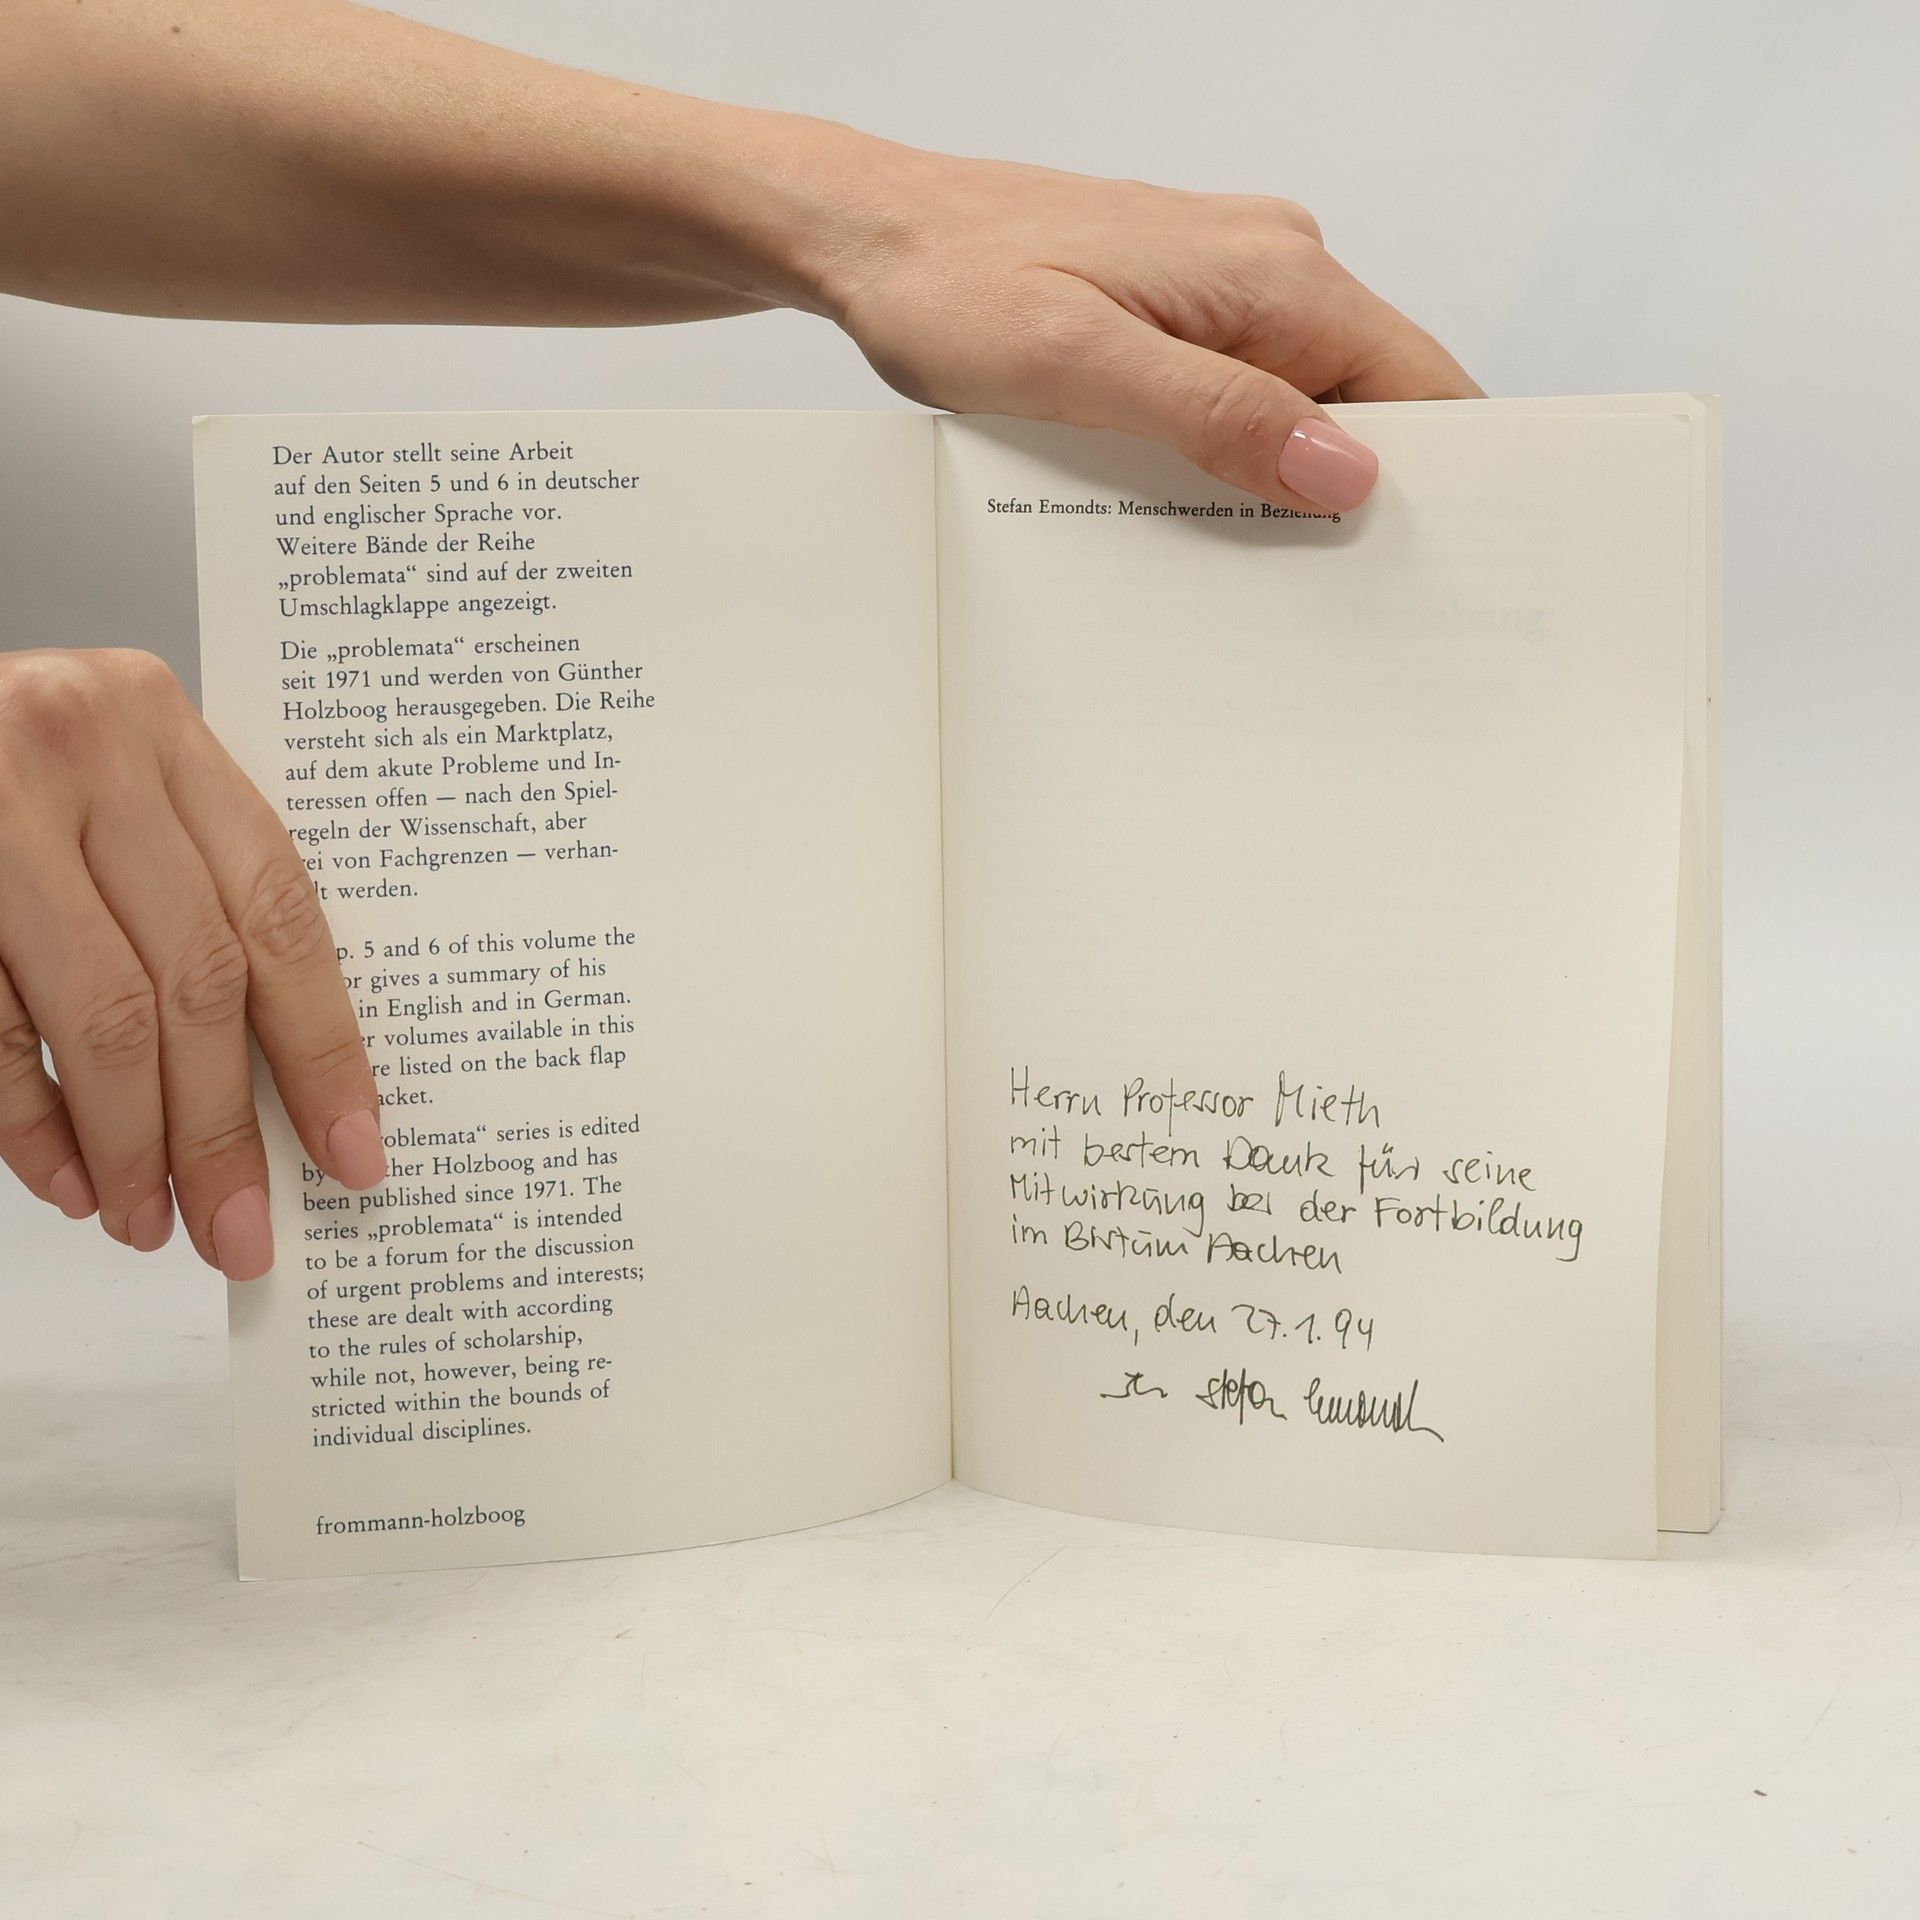 Der Autor stellt seine Arbeit
auf den Seiten 5 und 6 in deutscher
und englischer Sprache vor.
Weitere Bände der Reihe
„problemata“ sind auf der zweiten
Umschlagklappe angezeigt.
Die „problemata“ erscheinen
seit 1971 und werden von Günther
Holzboog herausgegeben. Die Reihe
versteht sich als ein Marktplatz,
auf dem akute Probleme und In-
teressen offen — nach den Spiel-
regeln der Wissenschaft, aber
rei von Fachgrenzen — verhan-
lt werden.
p. 5 and 6 of this volume the
or gives a summary of his
in English and in German.
er volumes available in this
re listed on the back flap
acket.
roblemata“ series is edited
by ther Holzboog and has
been published since 1971. The
series „problemata“ is intended
to be a forum for the discussion
of urgent problems and interests;
these are dealt with according
to the rules of scholarship,
while not, however, being re-
stricted within the bounds of
individual disciplines.
frommann-holzboog
Stefan Emondts: Menschwerden in Beziehung
Herrn Professor Mieth
mit bestem Dank für seine
Mitwirkung bei der Fortbildung
im Bistum Aachen
Aachen, den 27.1.94
Stefan Emondts